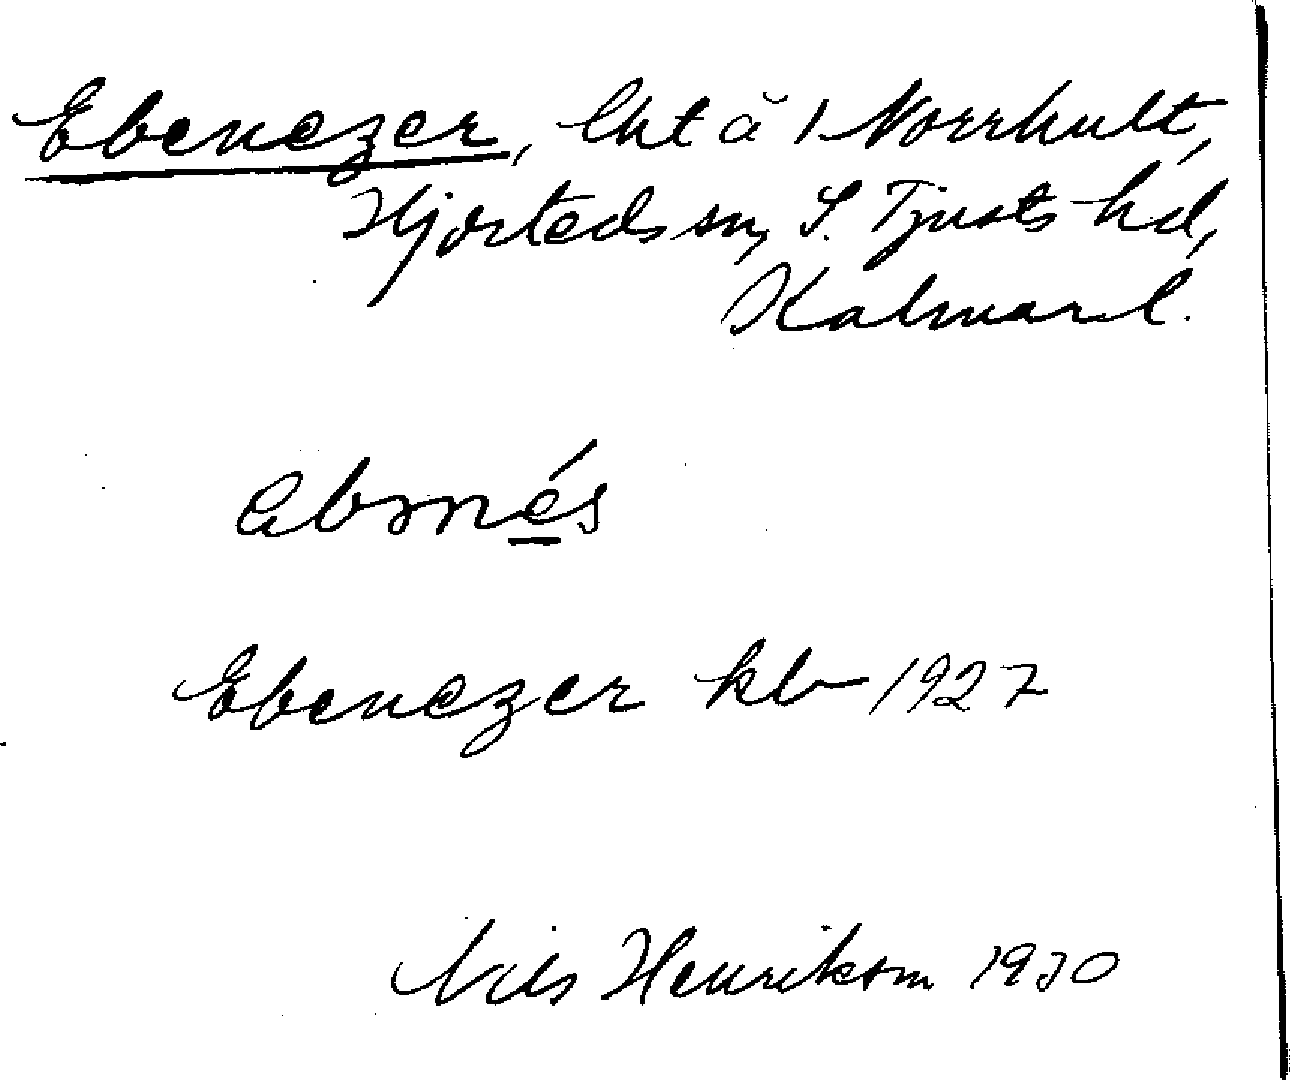 Ebenezer, lht å 1 Norrhult,
Hjorteds sn, S. Tjusts hd,
Kalmar l.
Ebenezer kb 1927
Nils Henrikson 1930